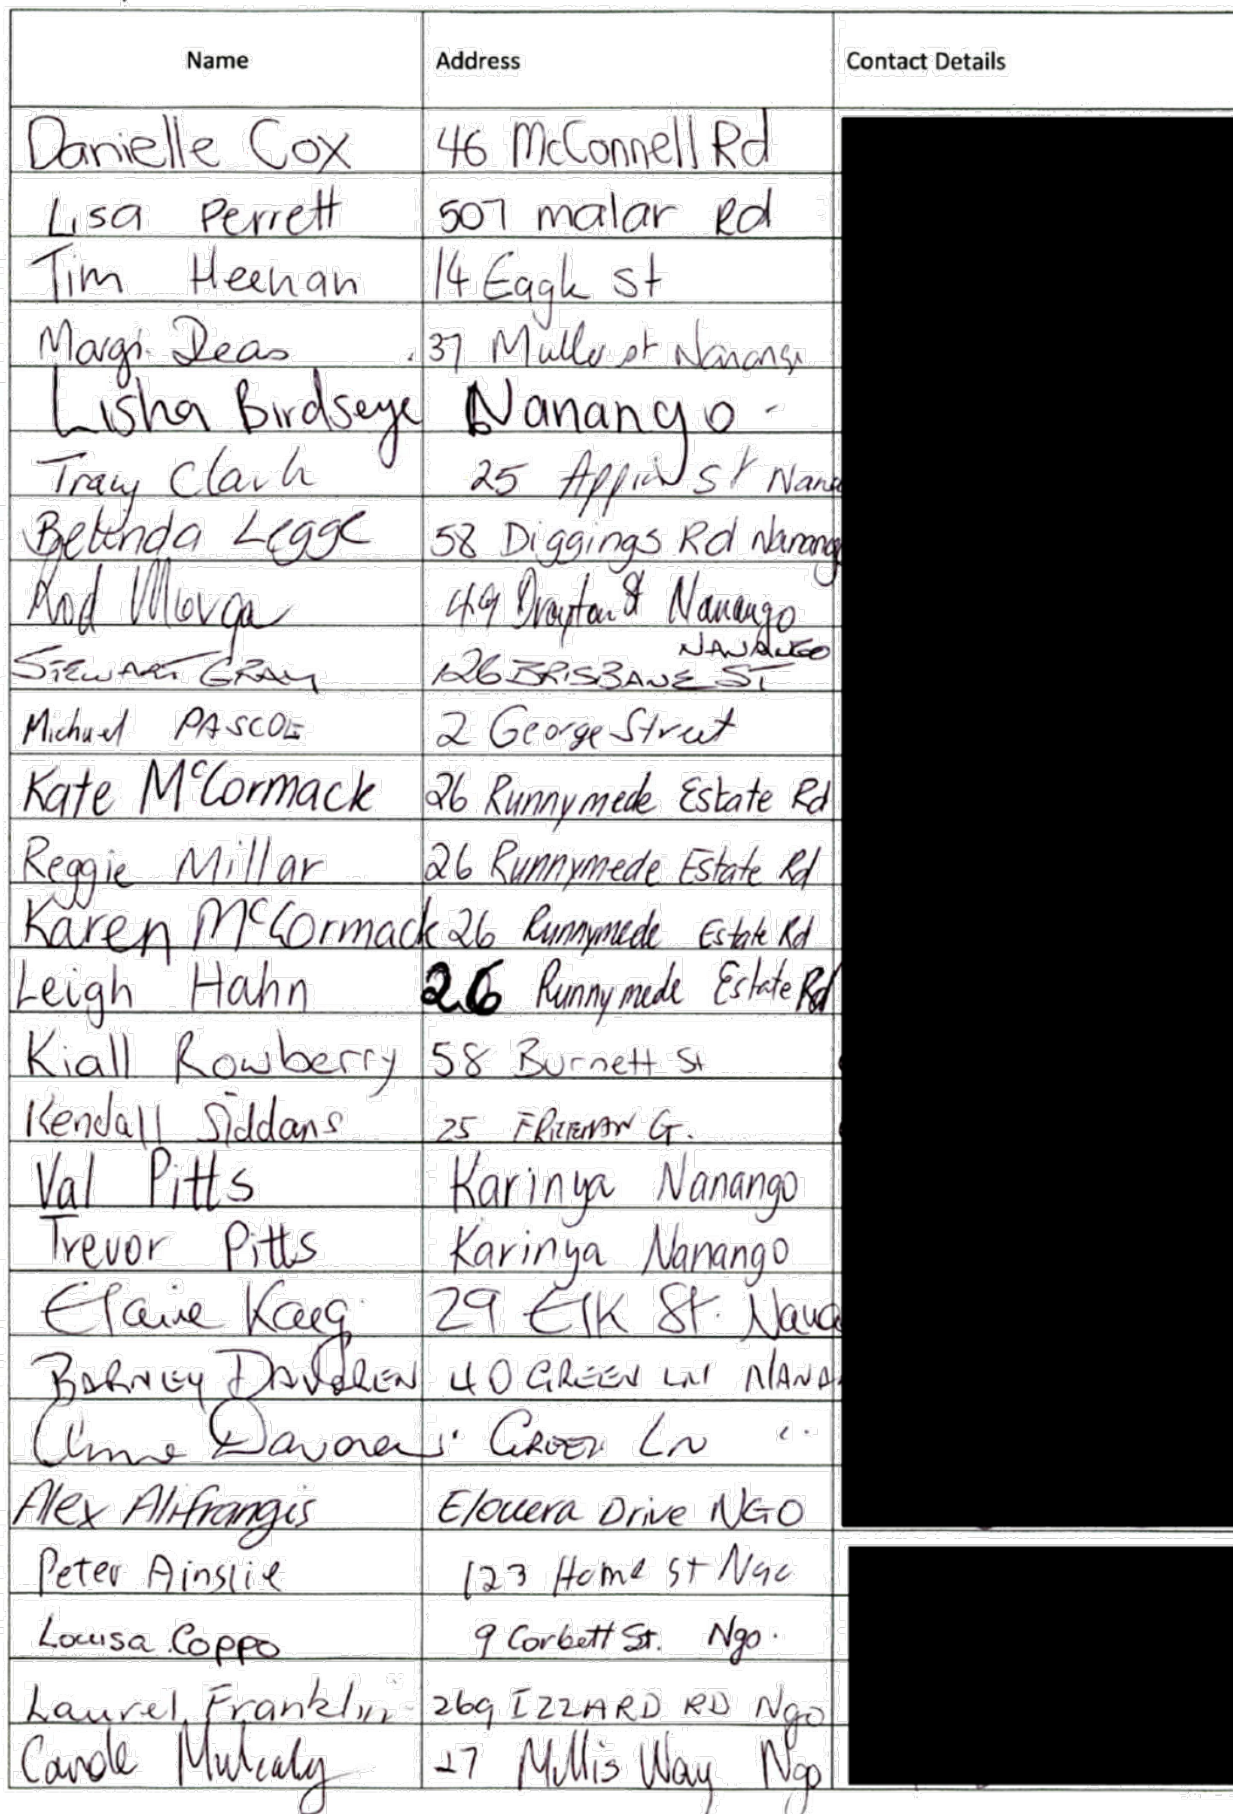 Name Address Contact Details
Danielle Cox 46 McConnell Rd
Lisa Perrett 507 malar Rd
Tim Heenan 14 Eagle St
Margi Deas 37 Muller st Nanango
Lisha Birdseye Nanango
Tracy Clark 25 Appin St Nana
Belinda Legge 58 Diggings Rd Nanang
Rod Morga 49 Drayton St Nanango
NANANGO
STEWART GRAY 126 BRISBANE ST
Michael PASCOE 2 George Street
Kate McCormack 26 Runnymede Estate Rd
Reggie Millar 26 Runnymede Estate Rd
Karen McCormack 26 Runnymede Estate Rd
Leigh Hahn 26 Runnymede Estate Rd
Kiall Rowberry 58 Burnett St
Kendall Siddans 25
Val Pitts Karinya Nanango
Trevor Pitts Karinya Nanango
Elaine 29 Elk St. Nana
BARNEY 40 GREEN LN NANA
Anne GREEN LN
Alex Alifrangis Elouera Drive NGO
Peter Ainslie 123 Home St
Louisa Coppo 9 Corbett St. Ngo.
Laurel Franklin 269 IZZARD RD Ngo
Carole Mulcahy 27 Millis Way Ngo